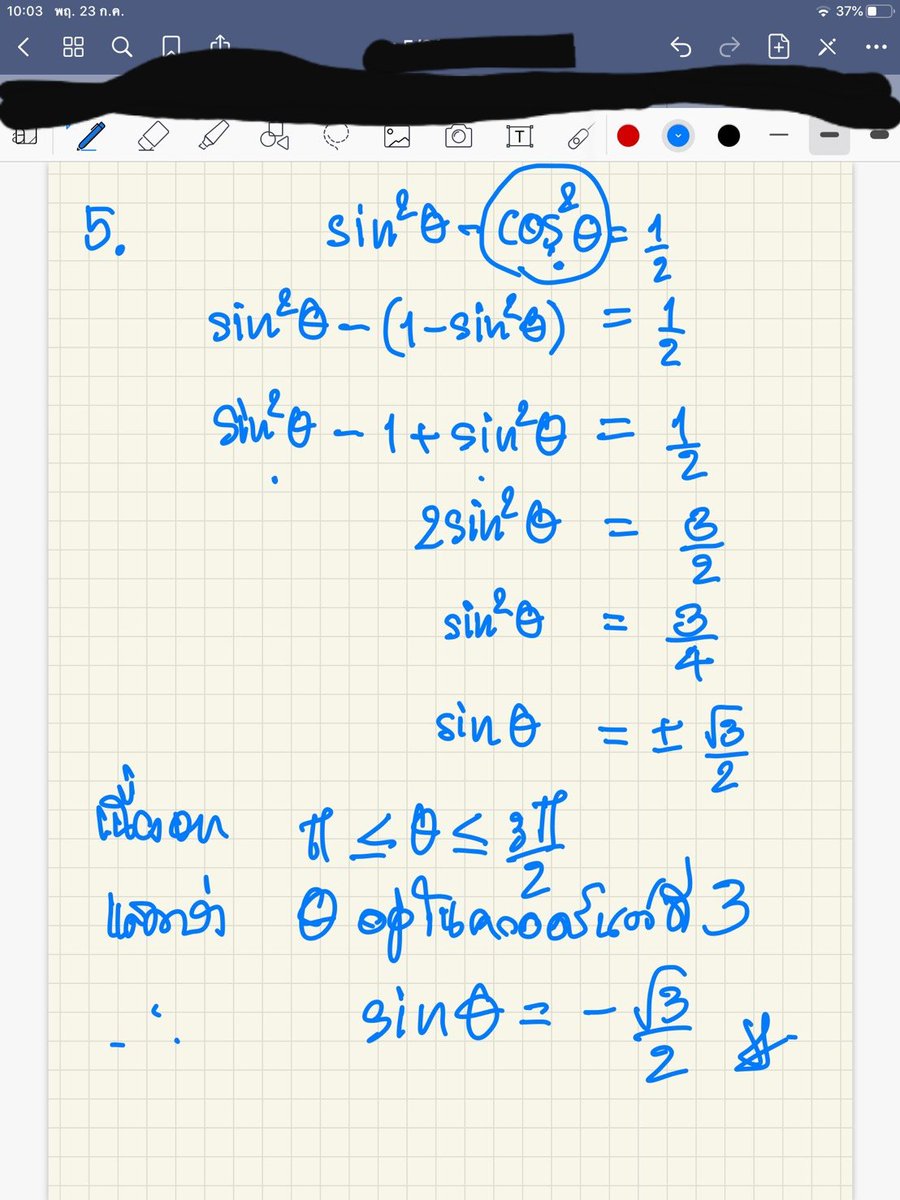 10:03 พฤ. 23 ก.ค. 37%
T
5. sin²θ - cos²θ = 1/2
sin²θ - (1 - sin²θ) = 1/2
sin²θ - 1 + sin²θ = 1/2
2sin²θ = 3/2
sin²θ = 3/4
sinθ = ± √3/2
เนื่องจาก π ≤ θ ≤ 3π/2
แสดงว่า θ อยู่ในควอดรันต์ที่ 3
∴ sinθ = - √3/2 #